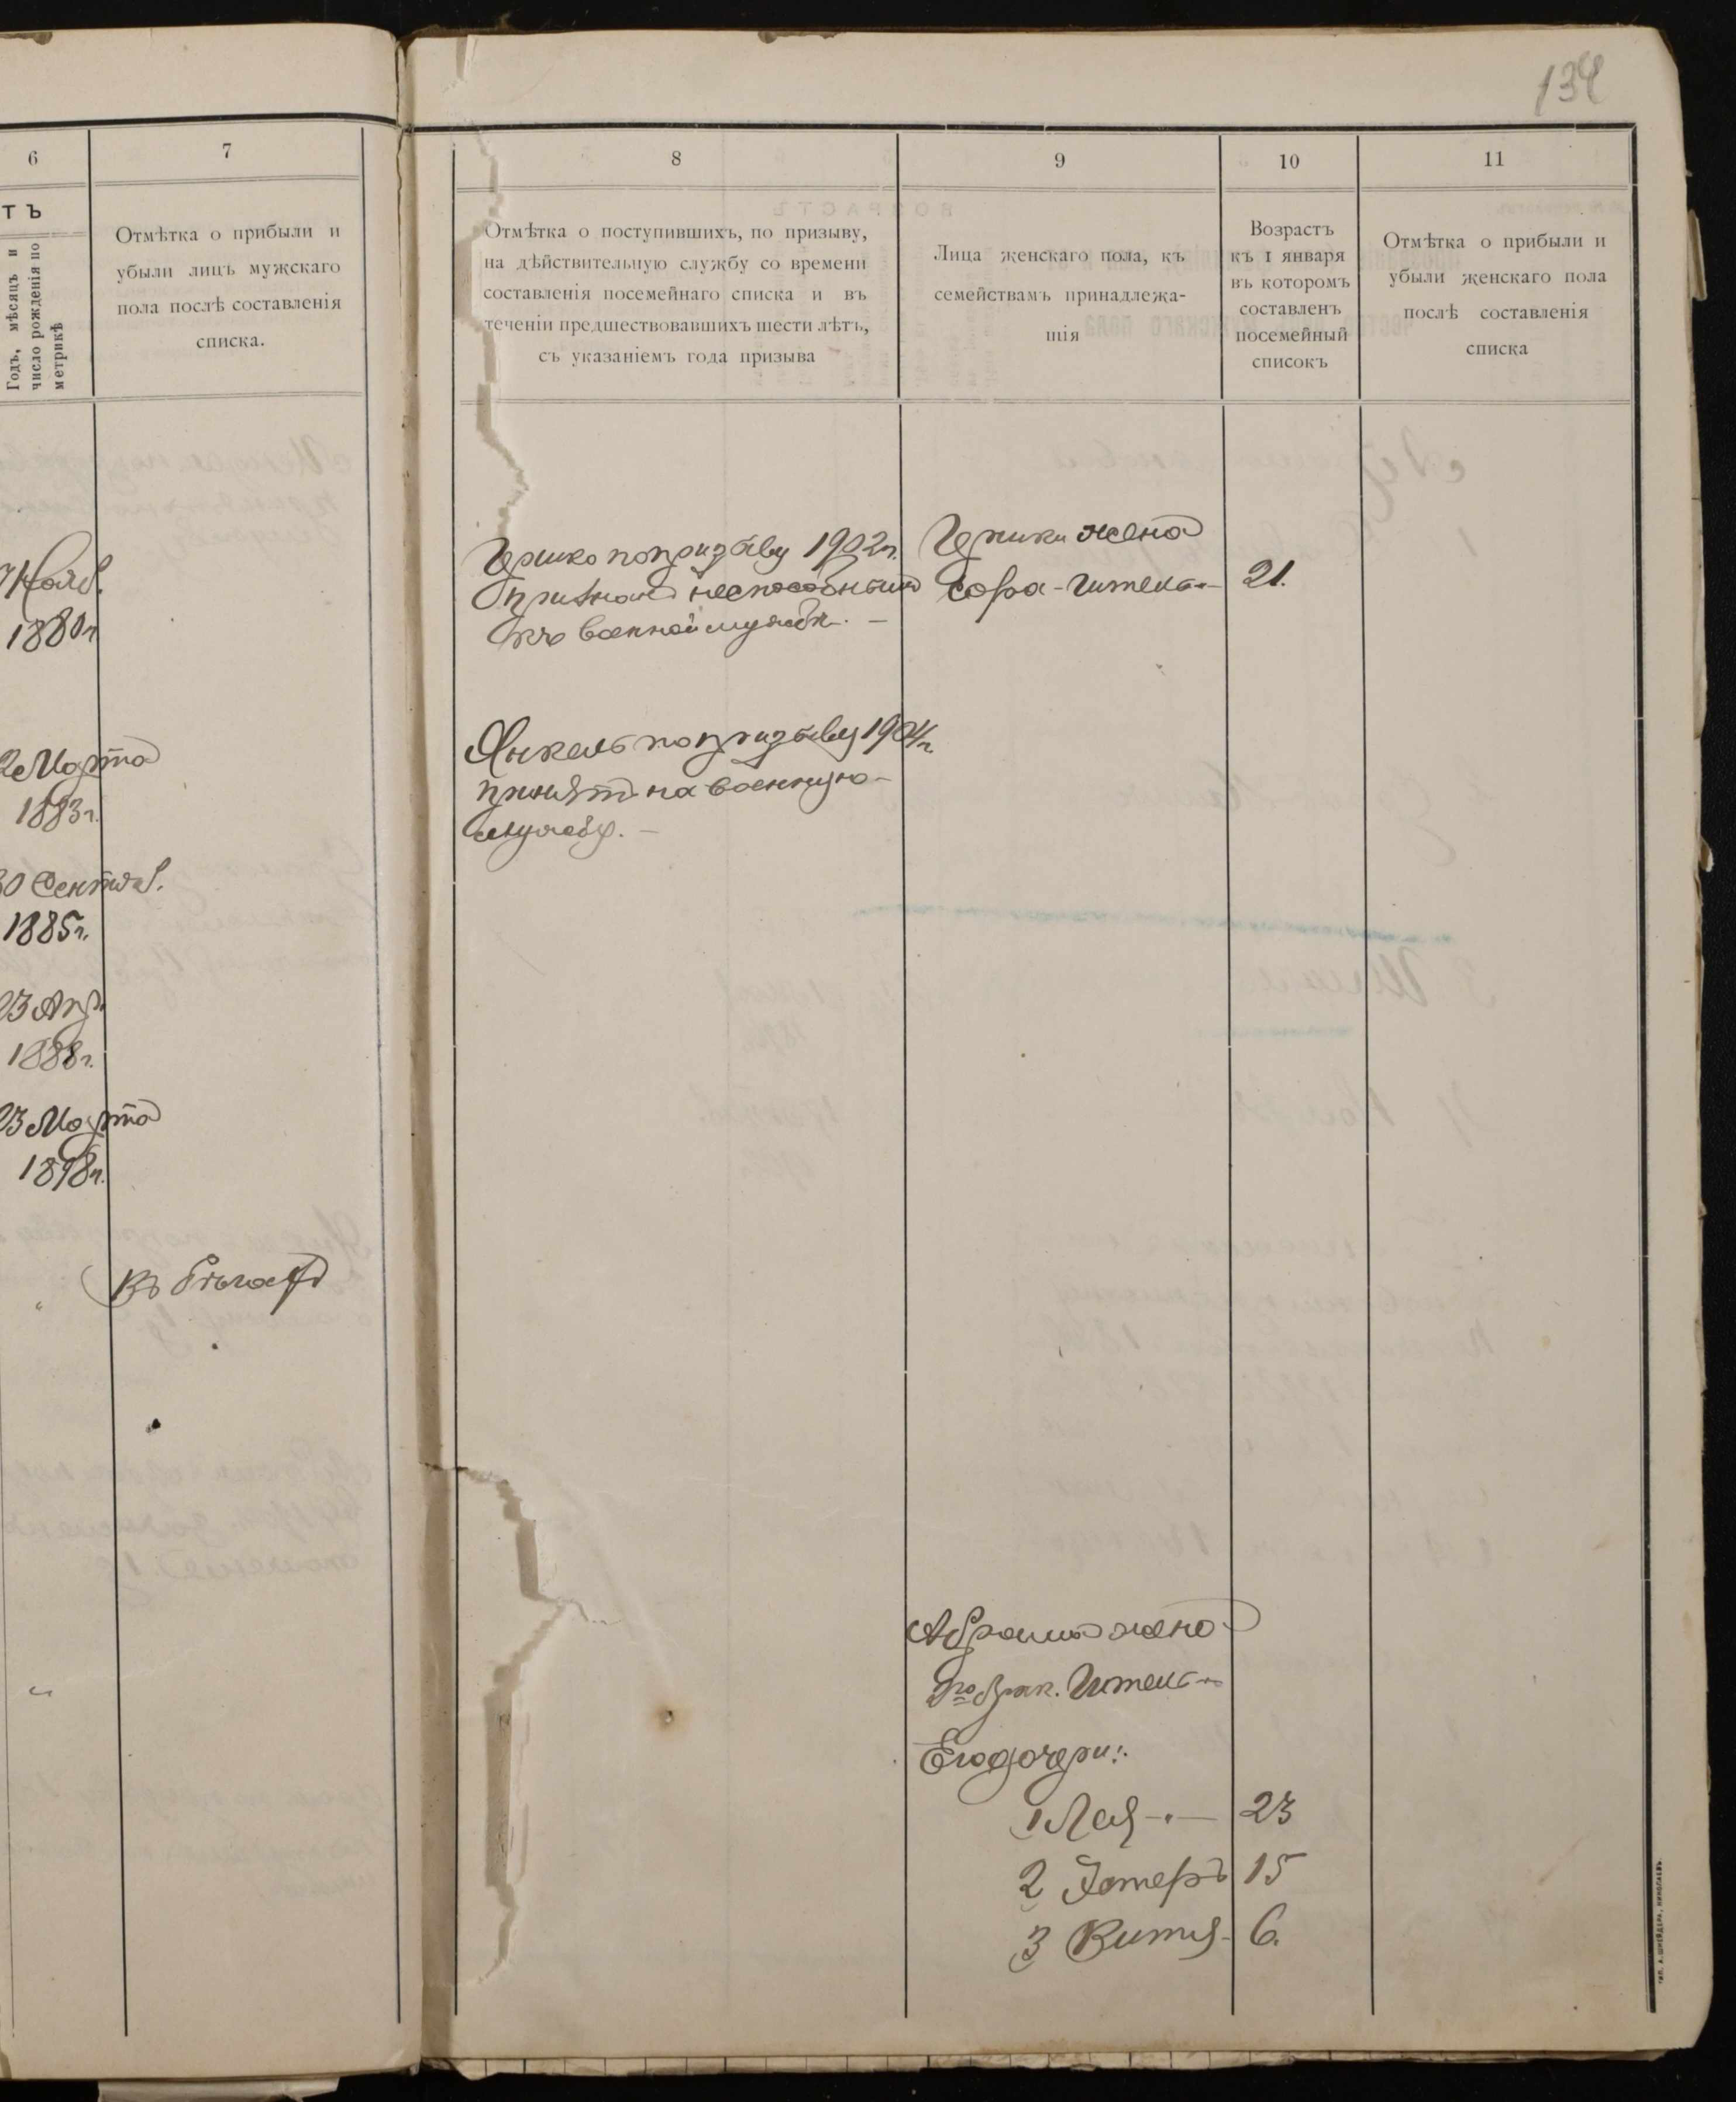 134
6
7
8
9
10
11
ТЪ
Годъ, мѣсяцъ и
число рожденія по
метрикѣ
Отмѣтка о прибыли и
убыли лицъ мужскаго
пола послѣ составленія
списка.
Отмѣтка о поступившихъ, по призыву,
на дѣйствительную службу со времени
составленія посемейнаго списка и въ
теченіи предшествовавшихъ шести лѣтъ,
съ указаніемъ года призыва
Лица женскаго пола, къ
семействамъ принадлежа-
щія
Возрастъ
къ 1 января
въ которомъ
составленъ
посемейный
списокъ
Отмѣтка о прибыли и
убыли женскаго пола
послѣ составленія
списка
7 Нояб.
1880г
2 Марта
1883г.
30 Сентяб.
1885г.
23 Апр.
1888г.
23 Марта
1898г.
Въ бѣгахъ
Гершко по призыву 1902г.
признанъ неспособнымъ
къ военной службѣ. —
Янкель по призыву 1904г.
принятъ на военную
службу. —
Гершки жена
Сора-Гитель — 21.
Абрама жена
2го брак. Гитель
Его дочери:
1 Лея — 23
2 Эстеръ 15
3 Витя - 6.
ТИП. А. ШНЕЙДЕРА, НИКОЛАЕВЪ.